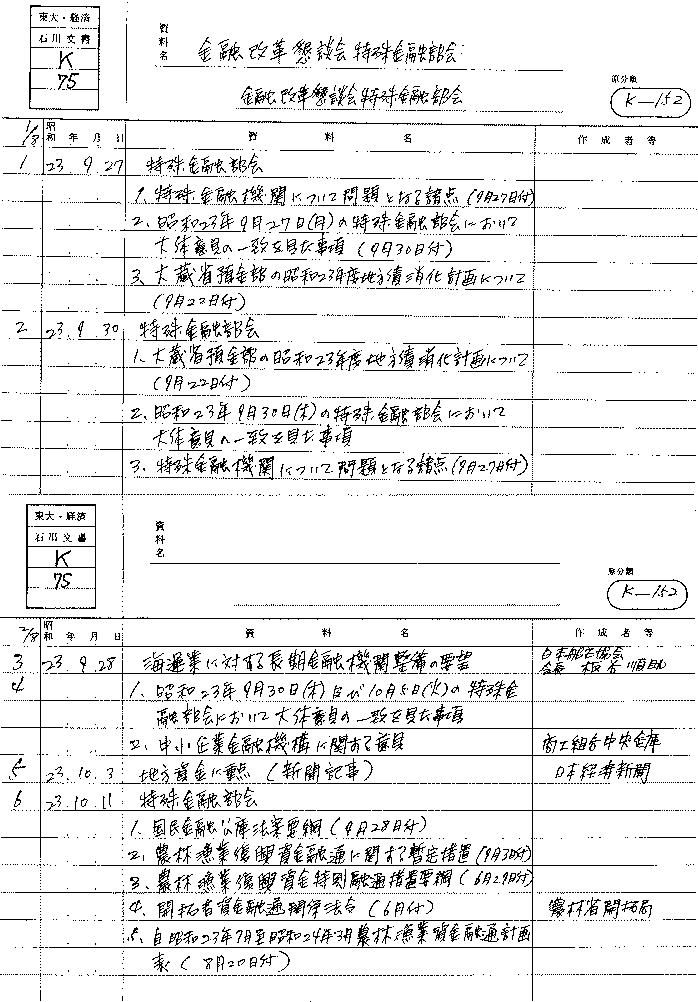 東大・経済
石川文書
K
75
資料名
金融改革懇談会特殊金融部会
金融改革懇談会特殊金融部会
原分類
K-152
1/8
昭和 年 月 日
資料名
作成者等
1 23.9.27 特殊金融部会
1. 特殊金融機関について問題となる諸点(9月27日付)
2. 昭和23年9月27日(月)の特殊金融部会において
大体意見の一致を見た事項(9月30日付)
3. 大蔵省預金部の昭和23年度地方債消化計画について
(9月22日付)
2 23.9.30 特殊金融部会
1. 大蔵省預金部の昭和23年度地方債消化計画について
(9月22日付)
2. 昭和23年9月30日(木)の特殊金融部会において
大体意見の一致を見た事項
3. 特殊金融機関について問題となる諸点(9月27日付)
東大・経済
石川文書
K
75
資料名
原分類
K-152
2/8
昭和 年 月 日
資料名
作成者等
3 23.9.28 海運業に対する長期金融機関整備の要望 日本船主協会
会長
4 1. 昭和23年9月30日(木)及び10月5日(火)の特殊金
融部会において大体意見の一致を見た事項
2. 中小企業金融機構に関する意見 商工組合中央金庫
5 23.10.3 地方資金に重点(新聞記事) 日本経済新聞
6 23.10.11 特殊金融部会
1. 国民金融公庫法案要綱(9月28日付)
2. 農林漁業復興資金融通に関する暫定措置(9月3日付)
3. 農林漁業復興資金特別融通措置要綱(6月29日付)
4. 開拓者資金融通関係法令(6月付) 農林省開拓局
5. 自昭和23年7月至昭和24年3月農林漁業資金融通計画
表(8月20日付)